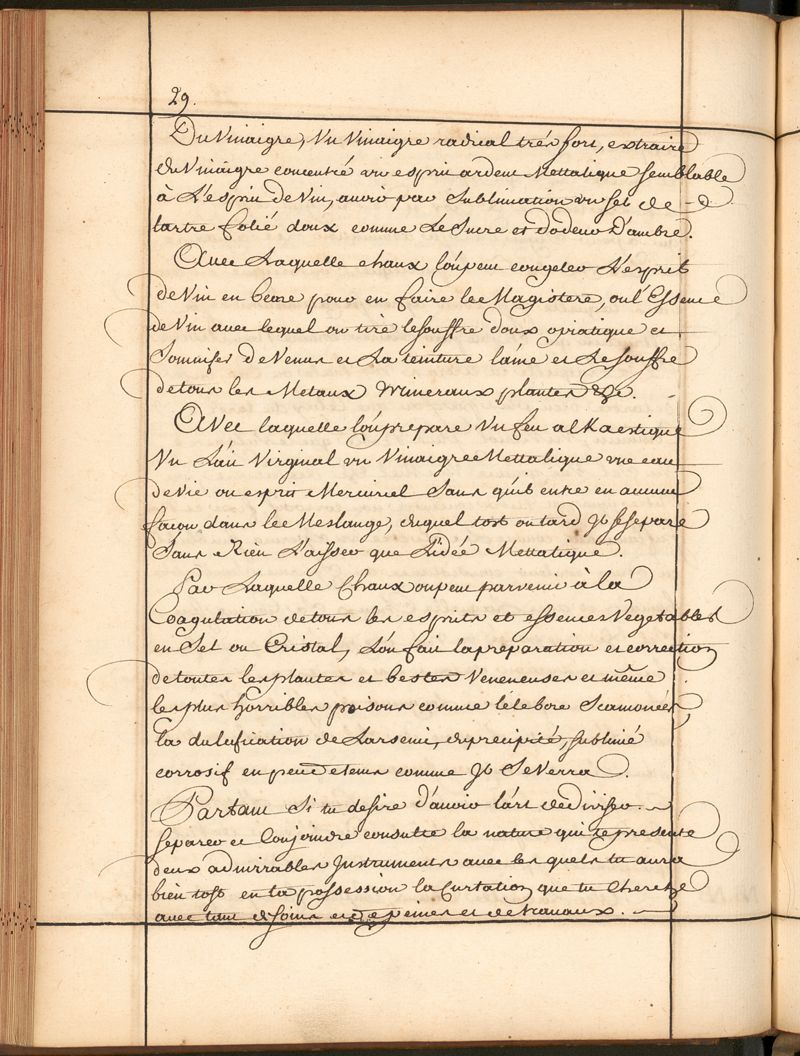 29.
Du Vinaigre, Un Vinaigre radical trés fort, extraire
du Vinaigre concentré un esprit ardent Mettalique semblable
à L'esprit de Vin, avoir par Sublimation un sel de
tartre folié doux comme Le Sucre et d'odeur D'ambre.
Avec Laquelle chaux l'on peut congeler L'esprit
de Vin en beure pour en faire le Magistere, ou l'Essence
de Vin avec lequel on tire le souffre doux opiatique et
Somnifer de Venus et La teinture l'ame et Le souffre
de tous les Metaux mineraux plantes &c.
Avec laquelle l'on prepare Un feu alkaestique
Un Lait Virginal un Vinaigre Mettalique une eau
de Vie ou esprit Mercuriel Sans qu'il entre en aucune
façon dans le Meslange, duquel tost ou tard Il se separe
Sans Rien Laisser que L'idée Mettalique.
Par Laquelle Chaux on peut parvenir à la
Coagulation de tous les esprits et essences Vegetables
en Sel ou Cristal, L'on fait la preparation et correction
de toutes les plantes et bestes Veneneuses et même
les plus horribles poisons comme lelebore Scamonées,
la dulcification de Larsenic, du precipité, sublimé
corrosif en peu de tems comme Il Se Verra.
Partant Si tu desire d'avoir l'art de diviser
separer et Conjoindre consulte la nature qui te presente
deux admirables Instruments avec les quels tu aura
bien tost en ta possession la que tu cherche
avec tant de soins et de peines et de travaux.